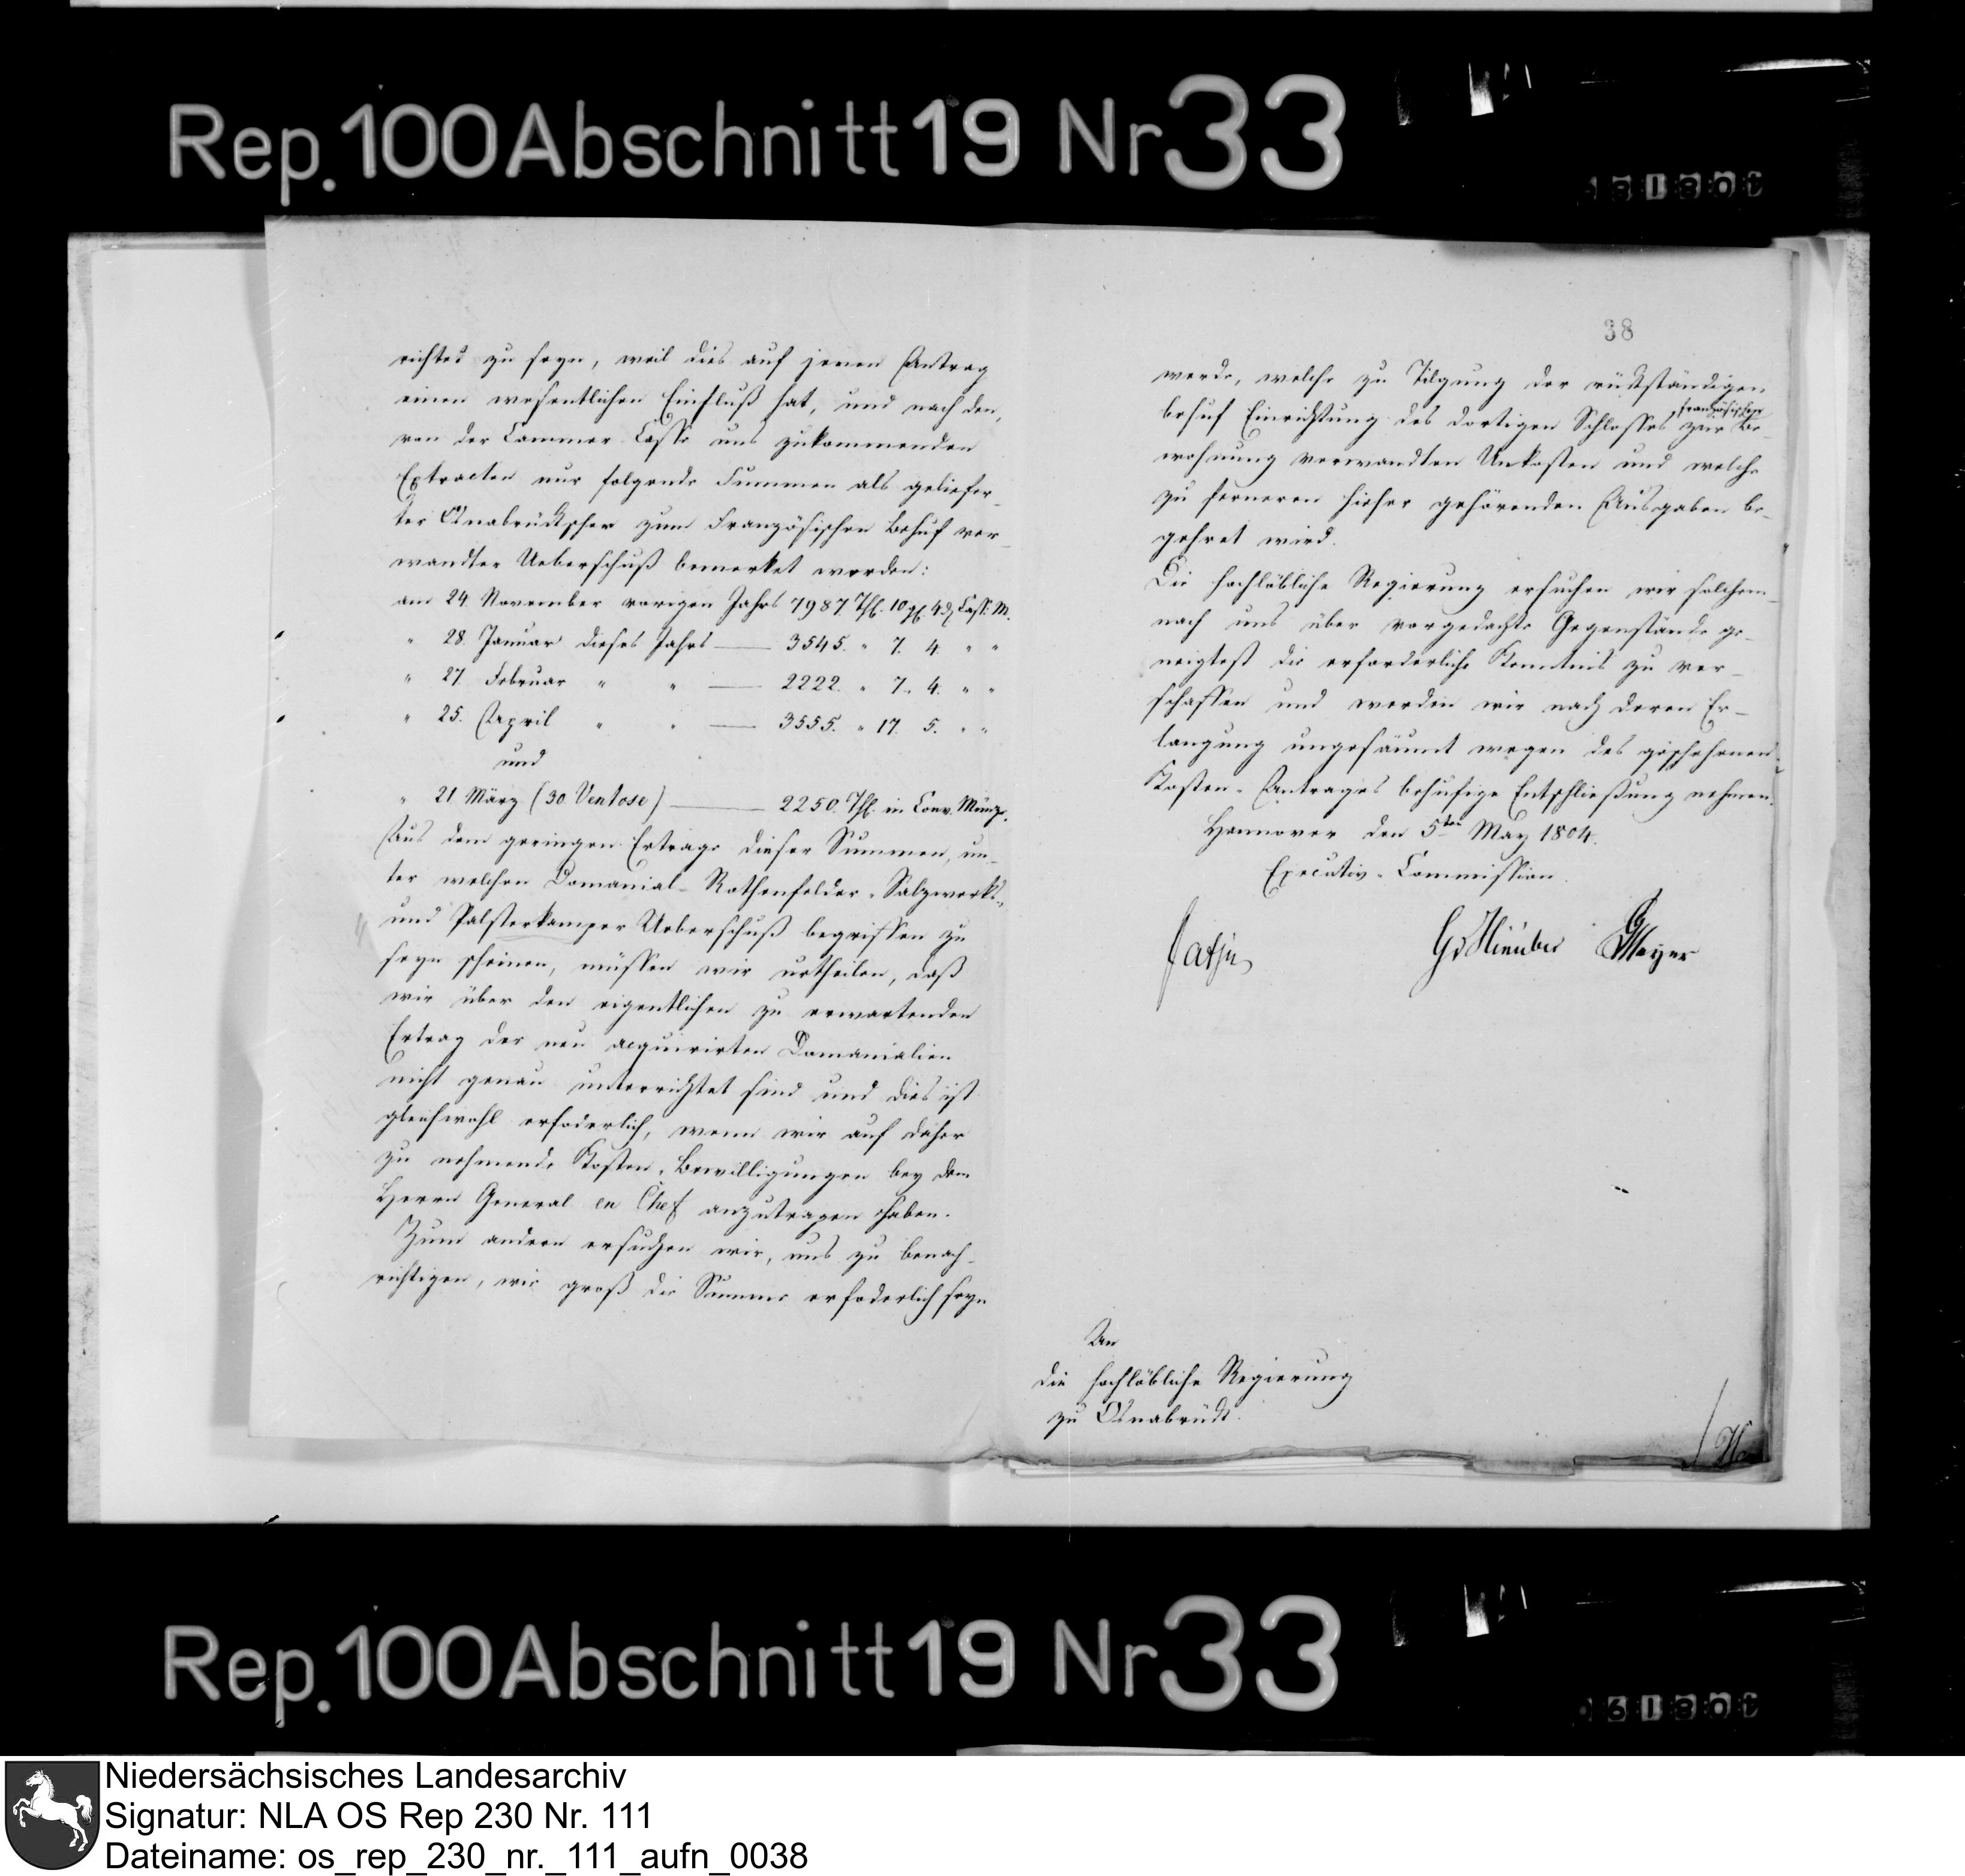 Rep. 100 Abschnitt 19 Nr 33
richtet zu seyn, weil dies auf jenen Antrag
einen wesentlichen Einfluß hat, und nach den,
von der Cammer-Casse uns zukommenden
Extracten nur folgende Summen als geliefer-
ter Osnabrückscher zum Französischen Behuf ver-
wandter Ueberschuß bemerket worden:
am 24. November vorigen Jahrs 7987 Thl. 10 gl 4 d Cass. M.
" 28. Januar dieses Jahrs — 3545. " 7. 4. " "
" 27. Februar " " — 2222. " 7. 4. " "
" 25. April " " — 3555. " 17. 5. " "
und
" 21 März (30 Ventose) — 2250. Thl. in Conv. Münze.
Aus dem geringen Ertrage dieser Summen, un-
ter welchen Domanial- Rothenfelder-Salzwerks-,
und Palsterkamper Ueberschuß begriffen zu
seyn scheinen, müssen wir urtheilen, daß
wir über den eigentlichen zu erwartenden
Ertrag der neu acquirirten Domanialien
nicht genau unterrichtet sind und dies ist
gleichwohl erfoderlich, wenn wir auf daher
zu nehmende Kosten-Bewilligungen bey dem
Herrn General en Chef anzutragen haben.
Zum andern ersuchen wir, uns zu benach-
richtigen, wie groß die Summe erfoderlich seyn
38
werde, welche zu Tilgung der rückständigen
behuf Einrichtung des dortigen Schlosses zur französischen Be-
wohnung verwandten Unkosten und welche
zu ferneren hieher gehörenden Ausgaben be-
gehret wird.
Die hochlöbliche Regierung ersuchen wir solchem-
nach uns über vorgedachte Gegenstände ge-
neigtest die erforderliche Kenntnis zu ver-
schaffen und werden wir nach deren Er-
langung ungesäumt wegen des geschehenen
Kosten-Antrages behufige Entschließung nehmen.
Hannover den 5ten May 1804.
Executiv-Commission.
Patje GvHinüber Meyer
An
die hochlöbliche Regierung
zu Osnabrück.
Rep. 100 Abschnitt 19 Nr 33
Niedersächsisches Landesarchiv
Signatur: NLA OS Rep 230 Nr. 111
Dateiname: os_rep_230_nr._111_aufn_0038